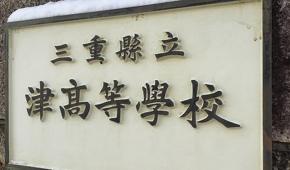 三重縣立
津髙等學校